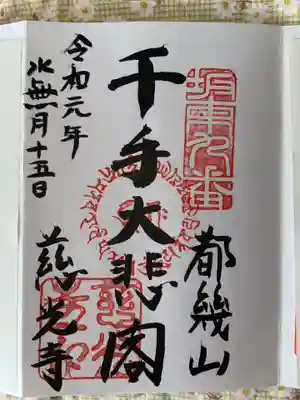 坂東九番
都幾山
千手大悲閣
令和元年
水無月十五日
慈光寺